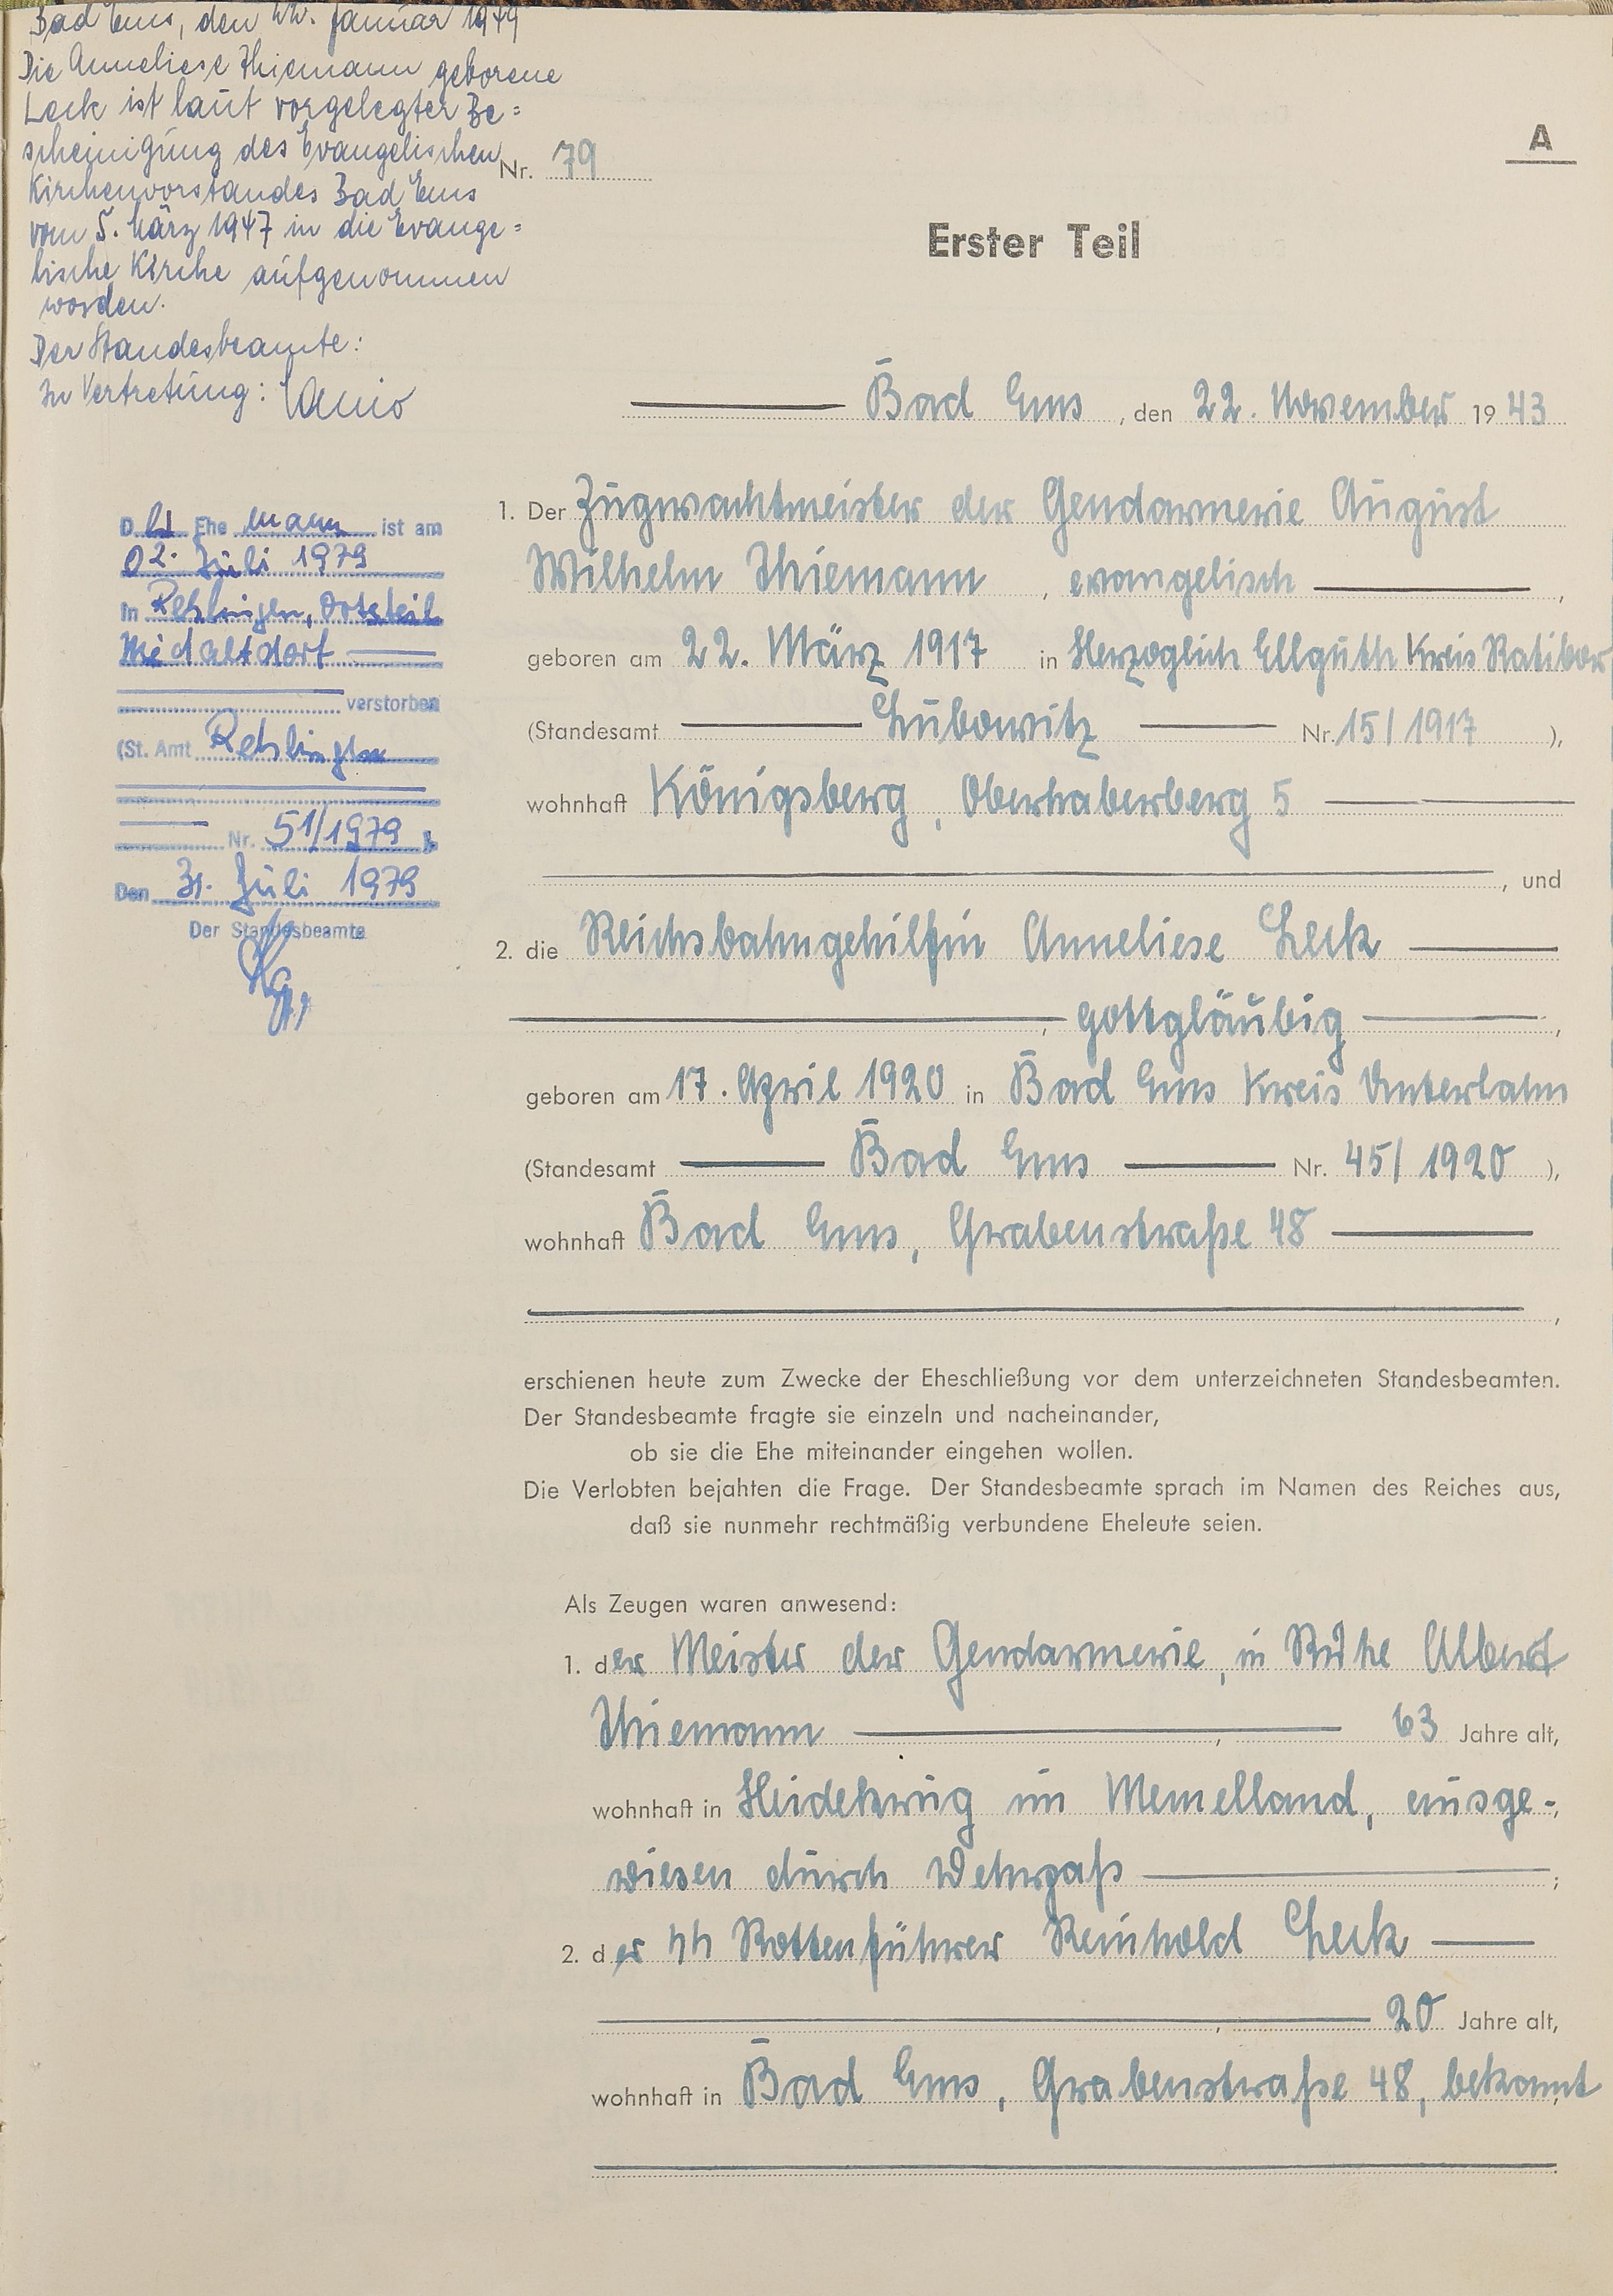 Bad Ems, den Januar 1949
Die Anneliese Thiemann geborene
Leck ist laut vorgelegter Be=
scheinigung des Evangelischen
Kirchenvorstandes Bad Ems
vom 5. März 1947 in die Evange=
lische Kirche aufgenommen
worden.
Der Standesbeamte:
In Vertretung:
Der Ehemann ist am
02. Juli 1979
in Rehlingen, Ortsteil
Niedaltdorf
verstorben
(St. Amt Rehlingen
Nr. 51/1979 ).
Den 31. Juli 1979
Der Standesbeamte
A
Nr. 79
Erster Teil
Bad Ems, den 22. November 1943
1. Der Zugwachtmeister der Gendarmerie August
Wilhelm Thiemann, evangelisch,
geboren am 22. März 1917 in Herzoglich Ellguth Kreis Ratibor
(Standesamt Lubowitz Nr. 15/1917 ),
wohnhaft Königsberg, Oberhaberberg 5
, und
2. die Reichsbahngehilfin Anneliese Leck
, gottgläubig,
geboren am 17. April 1920 in Bad Ems Kreis Unterlahn
(Standesamt Bad Ems Nr. 45/1920 ),
wohnhaft Bad Ems, Grabenstraße 48
,
erschienen heute zum Zwecke der Eheschließung vor dem unterzeichneten Standesbeamten.
Der Standesbeamte fragte sie einzeln und nacheinander,
ob sie die Ehe miteinander eingehen wollen.
Die Verlobten bejahten die Frage. Der Standesbeamte sprach im Namen des Reiches aus,
daß sie nunmehr rechtmäßig verbundene Eheleute seien.
Als Zeugen waren anwesend:
1. der Meister der Gendarmerie, in Ruhe Albert
Thiemann, 63 Jahre alt,
wohnhaft in Heidekrug im Memelland, ausge-,
wiesen durch Wehrpaß ;
2. der SS Rottenführer Reinhold Leck
, 20 Jahre alt,
wohnhaft in Bad Ems, Grabenstraße 48, bekannt,
.